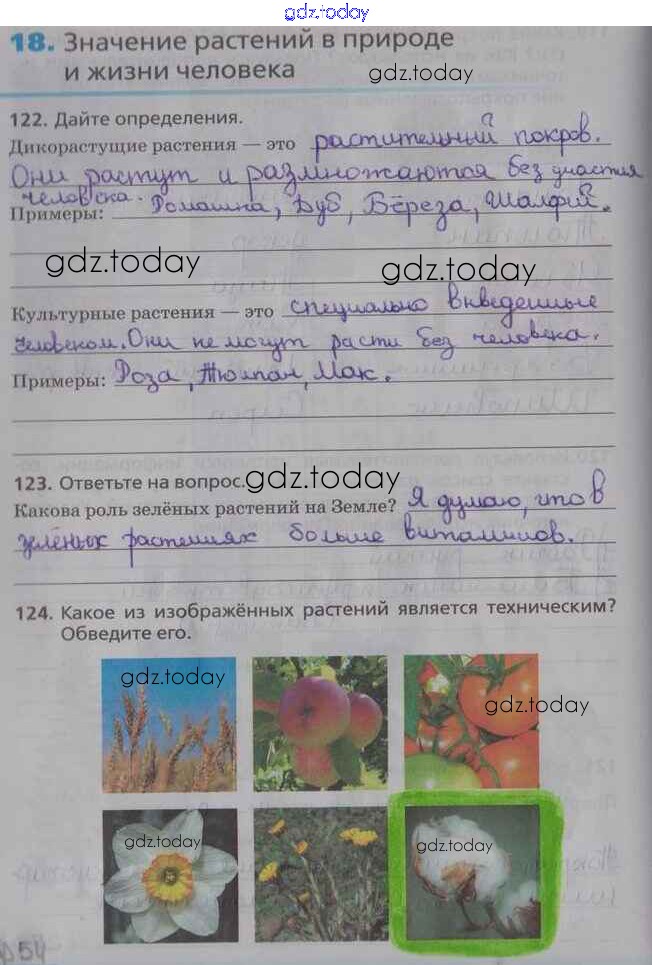 gdz.today
18. Значение растений в природе
и жизни человека
gdz.today
122. Дайте определения.
Дикорастущие растения — это растительный покров.
Они растут и размножаются без участия
человека.
Примеры: Ромашка, Дуб, Берёза, Шалфей.
gdz.today
gdz.today
Культурные растения — это специально введенные
человеком. Они не могут расти без человека.
Примеры: Роза, Тюлпан, Мак.
123. Ответьте на вопрос.
gdz.today
Какова роль зелёных растений на Земле? Я думаю, что в
зелёных растениях больше витаминов.
124. Какое из изображённых растений является техническим?
Обведите его.
gdz.today
gdz.today
gdz.today
gdz.today
54